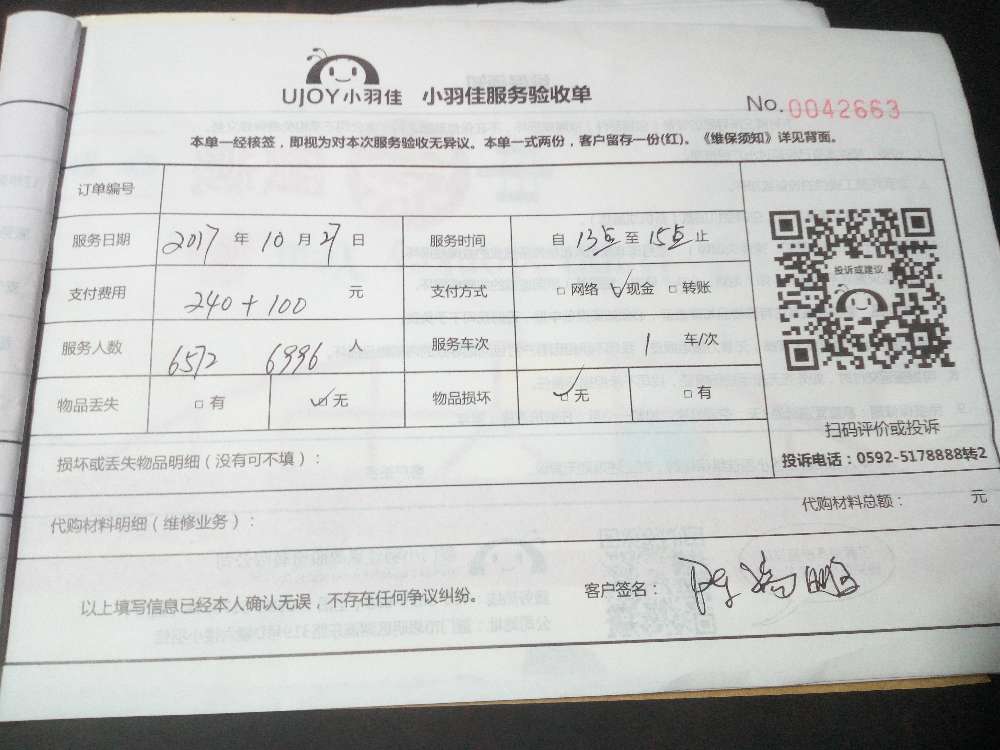 UJOY小羽佳 小羽佳服务验收单
No. 0042663
本单一经核签，即视为对本次服务验收无异议。本单一式两份，客户留存一份(红)。《维保须知》详见背面。
订单编号
服务日期 2017 年 10 月 27 日 服务时间 自 13点 至 15点 止
支付费用 240+100 元 支付方式 □网络 ☑现金 □转账
服务人数 6572 6996 人 服务车次 1 车/次
物品丢失 □有 ☑无 物品损坏 ☑无 □有
投诉或建议
扫码评价或投诉
投诉电话：0592-5178888转2
损坏或丢失物品明细（没有可不填）：
代购材料明细（维修业务）： 代购材料总额： 元
以上填写信息已经本人确认无误，不存在任何争议纠纷。 客户签名：